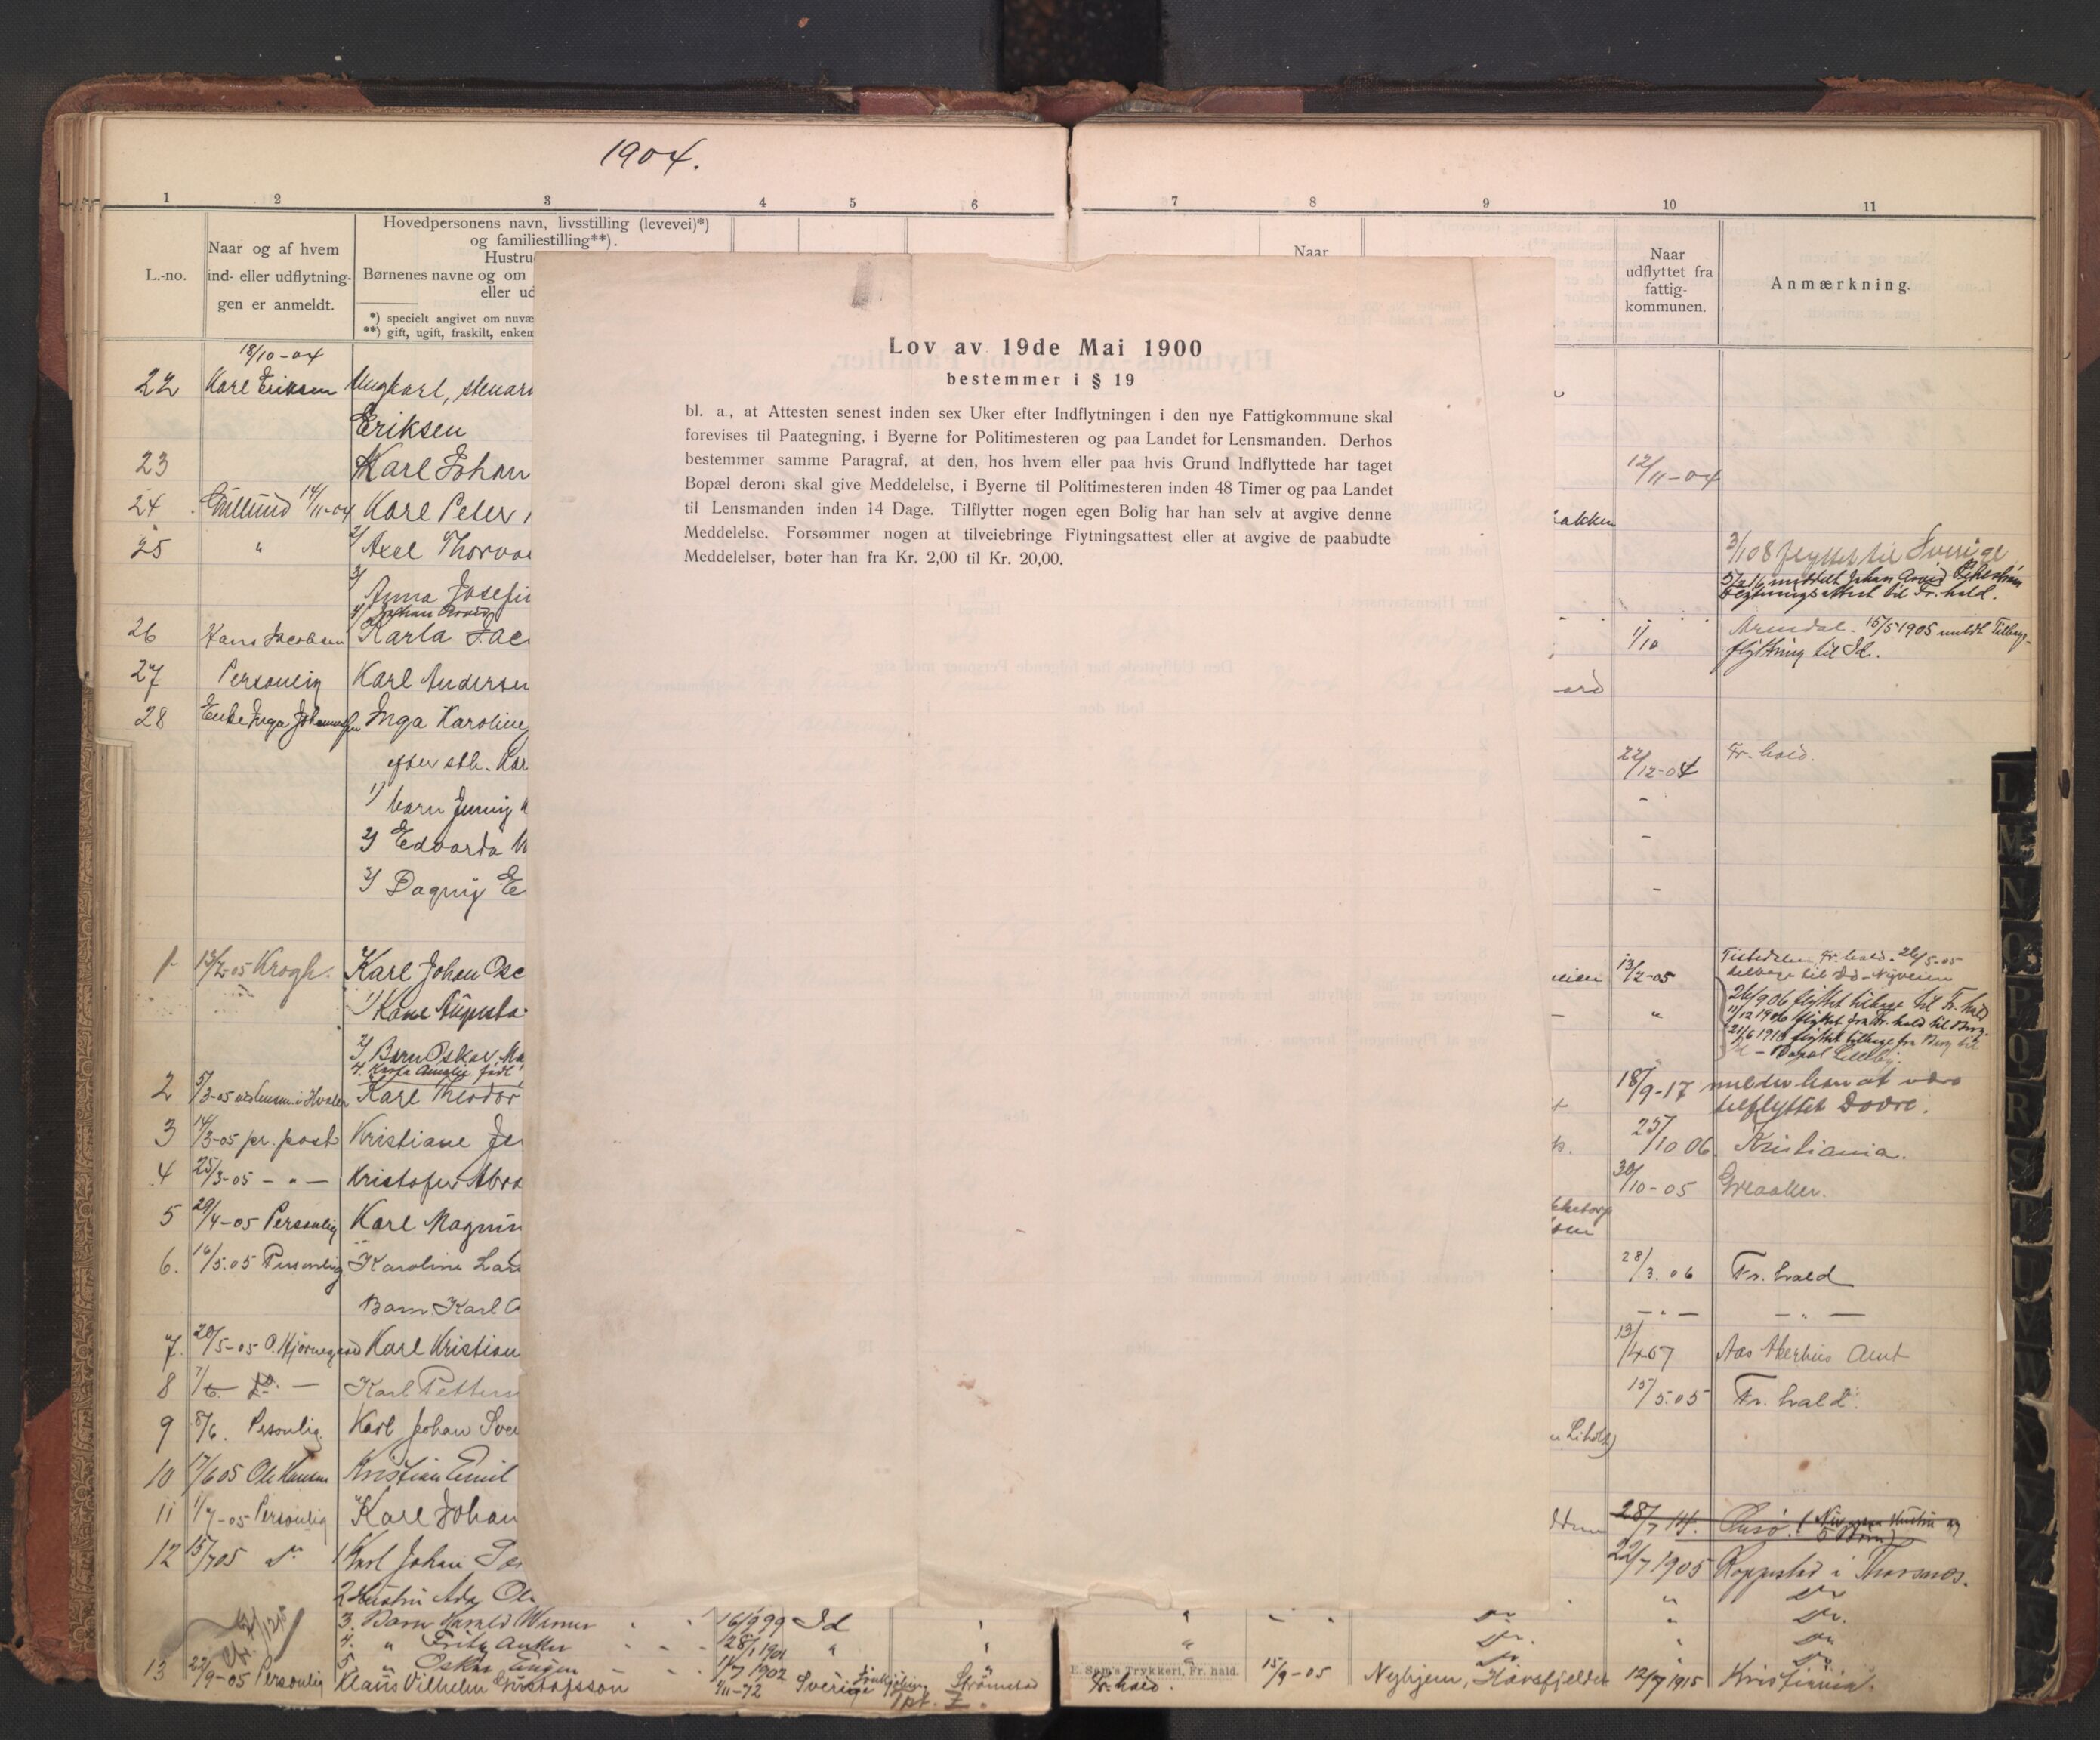 1904.
1 2 3 4 5 6 7 8 9 10 11
L.-no.
Naar og af hvem
ind- eller udflytnin-
gen er anmeldt.
Hovedpersonens navn, livsstilling (levevei)*)
og familiestilling**).
Hustru
Børnenes navne og om
eller ud
*) specielt angivet om nuvæ
**) gift, ugift, fraskilt, enkem
Naar
Naar
udflyttet fra
fattig-
kommunen.
Anmærkning.
Lov av 19de Mai 1900
bestemmer i § 19
bl. a., at Attesten senest inden sex Uker efter Indflytningen i den nye Fattigkommune skal
forevises til Paategning, i Byerne for Politimesteren og paa Landet for Lensmanden. Derhos
bestemmer samme Paragraf, at den, hos hvem eller paa hvis Grund Indflyttede har taget
Bopæl derom skal give Meddelelse, i Byerne til Politimesteren inden 48 Timer og paa Landet
til Lensmanden inden 14 Dage. Tilflytter nogen egen Bolig har han selv at avgive denne
Meddelelse. Forsømmer nogen at tilveiebringe Flytningsattest eller at avgive de paabudte
Meddelelser, bøter han fra Kr. 2,00 til Kr. 20,00.
18/10-04
22 Karl Eriksen Ungkarl, stenar
Eriksen
23 Karl Johan 12/11-04
24 14/11-04 Karl Peter
bakken
25 " 2/ Axel Thorva
3/1 08 flyttet til Sverige
3/ Anna Josefi
flytningsattest til Fr.hald.
4/ Johan Arvid
26 Hans Jacobsen Karla Jac 1/10 Arendal. 15/5 1905
flytning til Id.
27 Personlig Karl Andersen
28 Enke Inga Johannesen Inga Karoline
efter stb. Kar 22/12-04 Fr. hald.
1/ barn Jenny
2/ Edvarda
3/ Dagny E
1 13/2-05 Krogh. Karl Johan Osc 13/2-05 Tistedalen Fr. hald. 26/5-05
tilbage til Id - Nyveien
1) Kone Augusta "
26/9 06 flyttet tilbage til Fr. hald
11/12 1906 flyttet fra Fr. hald til Berg.
21/6 1910 flyttet tilbage fra Berg til
Id - Bopæl Lilleby.
2/ Barn Oskar Ma
4. Karla Amalie født
2 5/3-05 Karl Theodor 18/9-17 melder han at være
tilflyttet Dovre.
3 14/3-05 pr. post Kristiane Je 25/10 06 Kristiania.
4 25/3-05 - " - Kristofer Abra 30/10-05 Greaaker.
5 29/4-05 Personlig Karl Magnus
6. 16/5.05 Personlig Karoline Lar 28/3.06 Fr. hald
Barn Karl - " - - " -
7. 20/5-05 O. Hjørnegaard Karl Kristian 13/4 07 Aas Akerhus Amt
8 7/6. Do. - Karl Petters 15/5.05 Fr. hald.
9 8/6. Personlig. Karl Johan Sve
10 17/6 05 Ole Hansen Kristian Emil
11 1/7-05 Personlig Karl Johan 28/7 14.
12 15/7 05 Do 1 Karl Johan Pe 22/7 1905 Koppstad i Thorsnæs.
2 Hustru Ada Ol " Do
3. Barn Harald Werner 16/9 99 Id " Do " Do.
4. " Fritz Anker 28/1 1901 " " Do. " Do
5 " Oskar Eugen 11/7 1902 " Do Do
E. Sem's Trykkeri, Fr. hald.
13 22/9-05 Personlig Klaus Vilhelm Gustafsson 4/11-72 Sverige Strömstad Fr. hald. 15/9-05 Nyhjem, Havsfjelden 12/7 1915 Kristiania.
L
M
N
O
P
Q
R
S
T
U
V
W